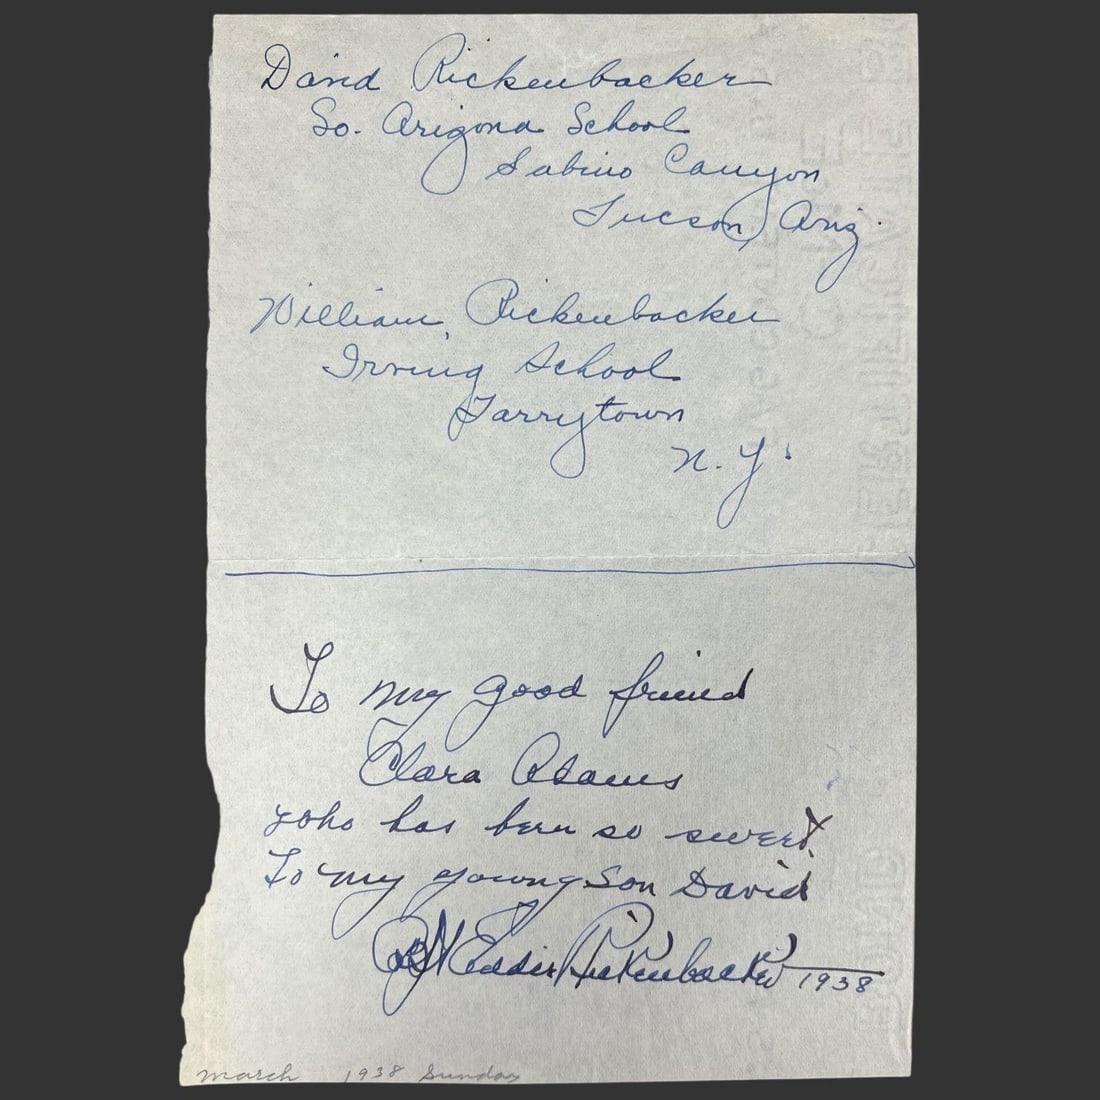 David Rickenbacker
So. Arizona School
Sabino Canyon
Tucson, Ariz.
William Rickenbacker
Irving School
Tarrytown
N.Y.
To my good friend
Clara Adams
who has been so sweet
To my young son David
Eddie Rickenbacker 1938
March 1938 Sunday